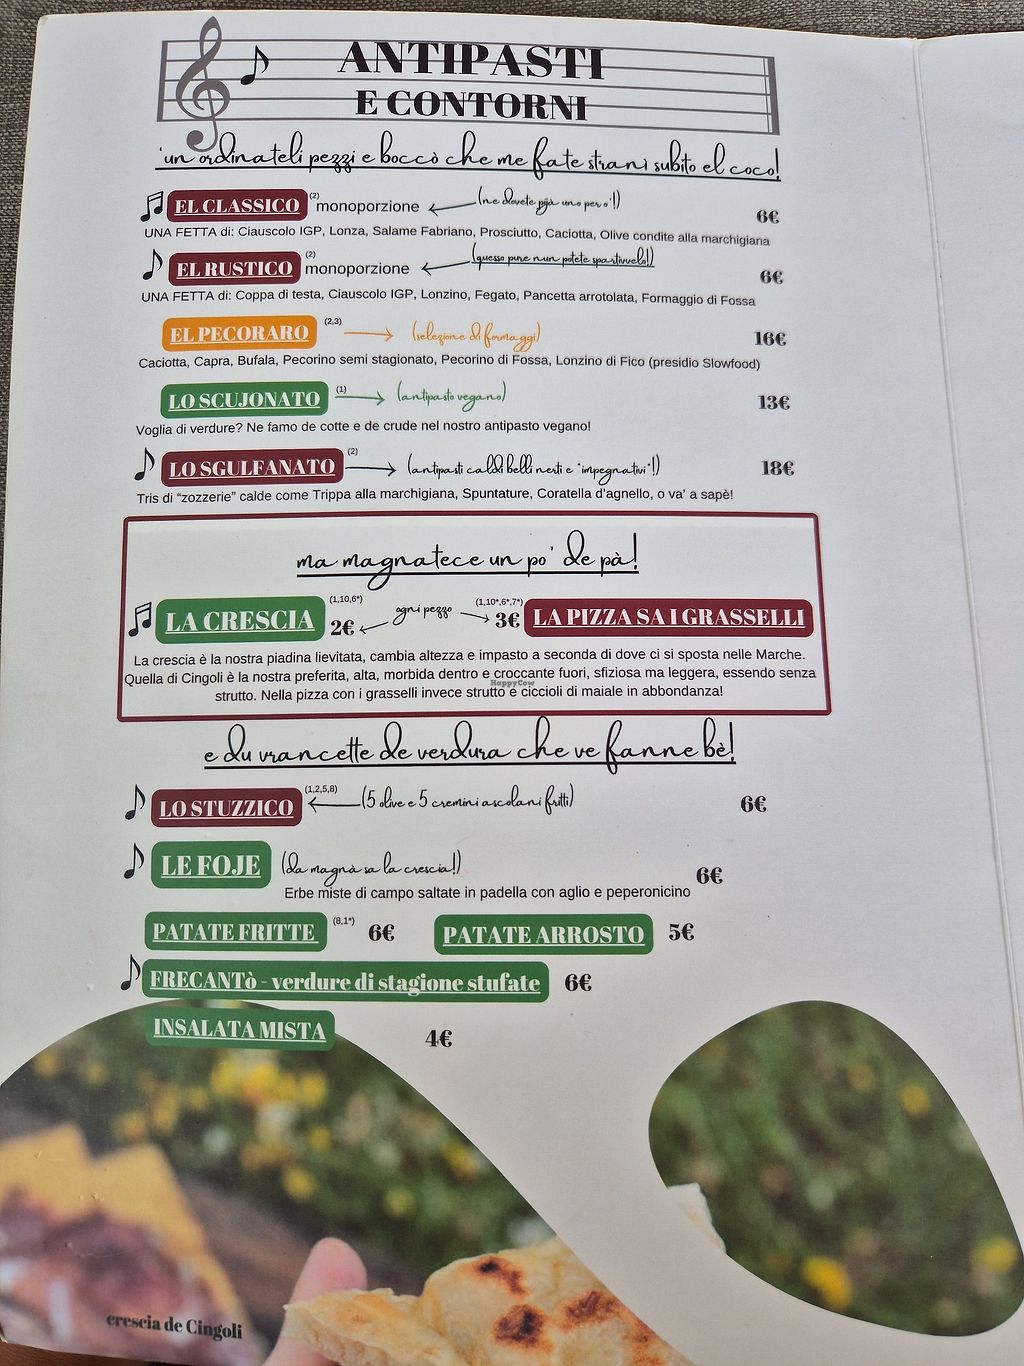 ANTIPASTI
E CONTORNI
'un ordinateli pezzi e boccò che me fate strani subito el coco!
EL CLASSICO (2) monoporzione (ne dovete pijà uno per o'!) 6€
UNA FETTA di: Ciauscolo IGP, Lonza, Salame Fabriano, Prosciutto, Caciotta, Olive condite alla marchigiana
EL RUSTICO (2) monoporzione (quesso pure nun potete spartivvelo!) 6€
UNA FETTA di: Coppa di testa, Ciauscolo IGP, Lonzino, Fegato, Pancetta arrotolata, Formaggio di Fossa
EL PECORARO (2,3) (selezione di formaggi) 16€
Caciotta, Capra, Bufala, Pecorino semi stagionato, Pecorino di Fossa, Lonzino di Fico (presidio Slowfood)
LO SCUJONATO (1) (antipasto vegano) 13€
Voglia di verdure? Ne famo de cotte e de crude nel nostro antipasto vegano!
LO SGULFANATO (2) (antipasti caldi belli nesti e "impegnativi"!) 18€
Tris di "zozzerie" calde come Trippa alla marchigiana, Spuntature, Coratella d'agnello, o va' a sapè!
ma magnatece un po' de pà!
LA CRESCIA (1,10,6*) 2€ ogni pezzo (1,10*,6*,7*) 3€ LA PIZZA SA I GRASSELLI
La crescia è la nostra piadina lievitata, cambia altezza e impasto a seconda di dove ci si sposta nelle Marche.
Quella di Cingoli è la nostra preferita, alta, morbida dentro e croccante fuori, sfiziosa ma leggera, essendo senza
strutto. Nella pizza con i grasselli invece strutto e ciccioli di maiale in abbondanza!
HappyCow
e du vrancette de verdura che ve fanne bè!
LO STUZZICO (1,2,5,8) (5 olive e 5 cremini ascolani fritti) 6€
LE FOJE (da magnà sa la crescia!) 6€
Erbe miste di campo saltate in padella con aglio e peperonicino
PATATE FRITTE (8,1*) 6€ PATATE ARROSTO 5€
FRECANTò - verdure di stagione stufate 6€
INSALATA MISTA 4€
crescia de Cingoli